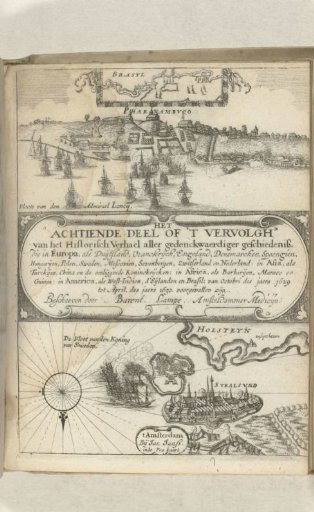 BRASYL
PHARNAMBUCO
Vloote van den Admirael Lancq.
HET
ACHTIENDE DEEL OF 'T VERVOLGH
van het Historisch Verhael aller gedenckwaerdiger geschiedeniss.
die in Europa, als Duijtsland, Vranckrijck, Engeland, Denemarcken, Spaengien,
Hungarijen, Polen, Sweden, Moscovien, Sevenbergen, Switserland en Nederland: in Asia, als
Turckijen, China en de omliggende Koninckrijcken: in Africa, als Barbarijen, Maroco en
Guinea: in America, als West-Indien, d'Eijlanden en Brasil: van Octobri des jaers 1629
tot April, des jaers voorgevallen zijn.
Beschreven door Barent Lampe. Amsteldammer Medicijn.
HOLSTEYN
De Vloot van den Koning
van Sweden.
STRALSUND
t'Amsterdam
Bij Jac. Janss.